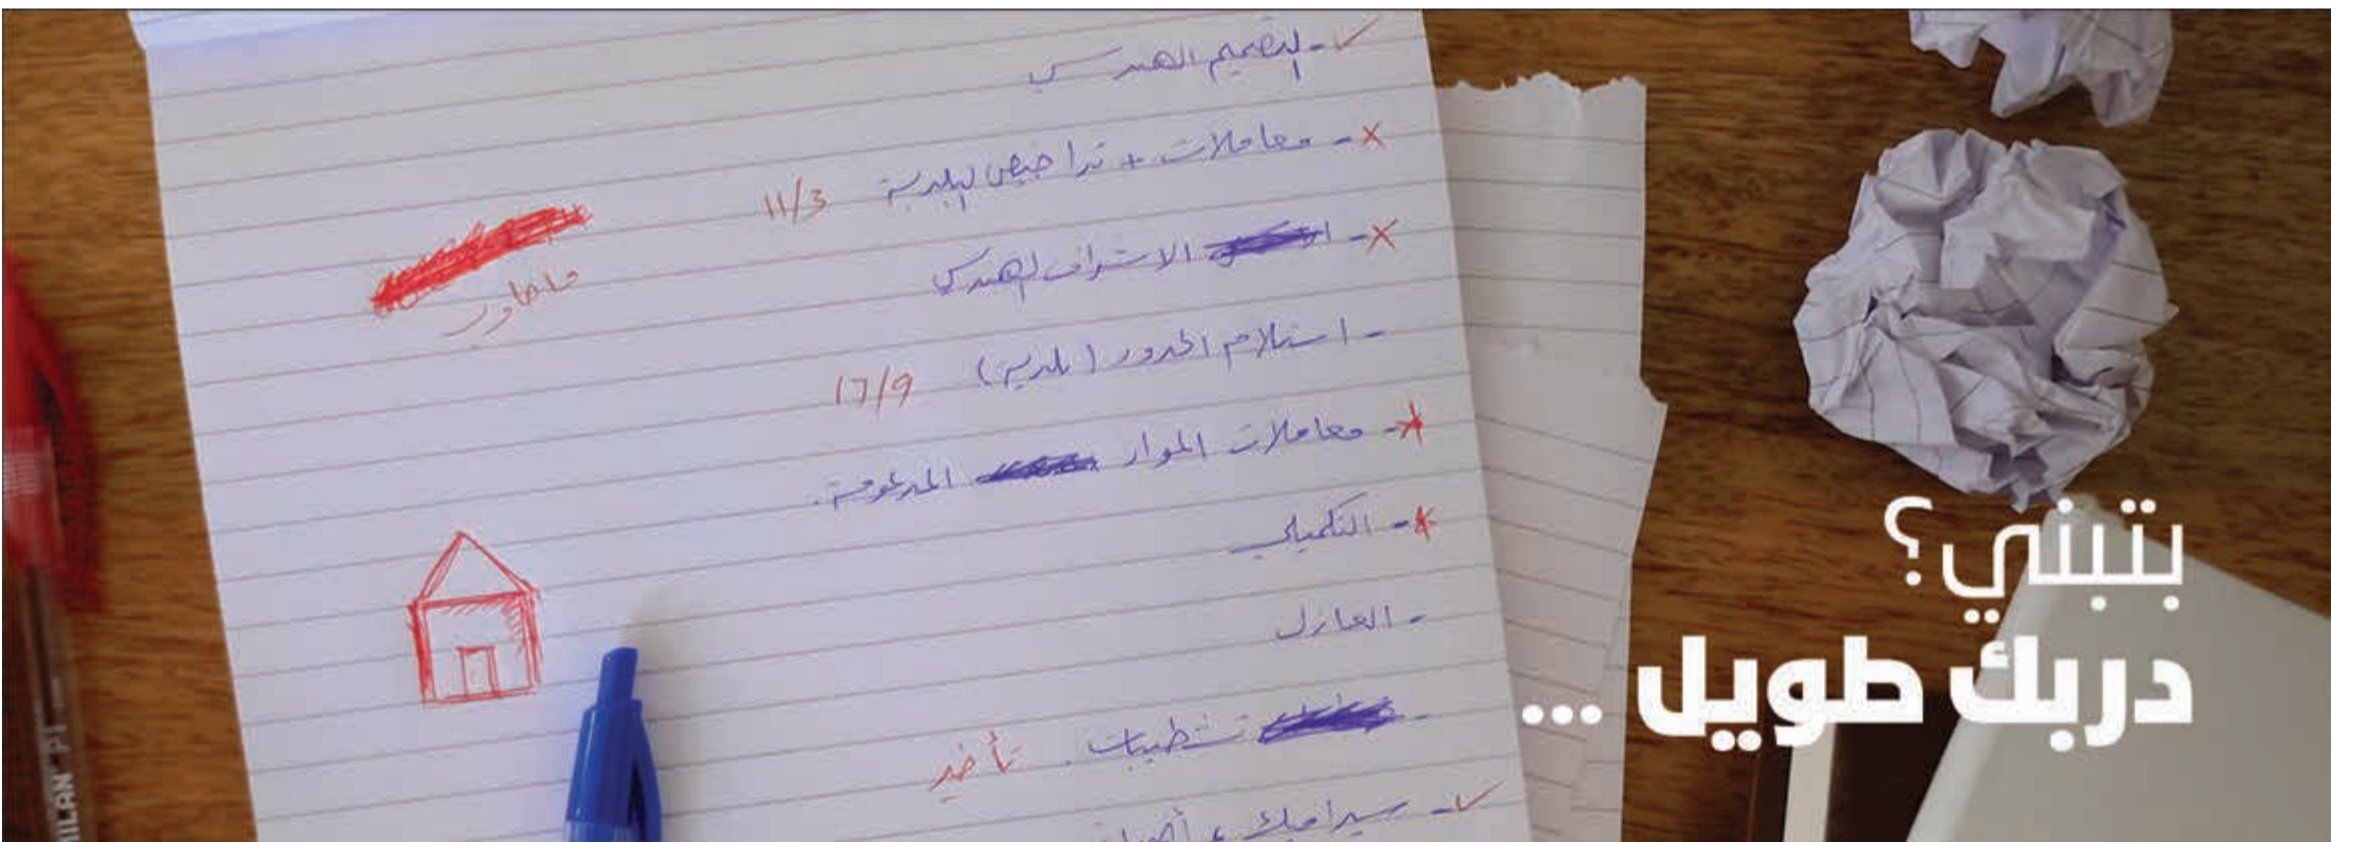 ✓ - التصميم الهندسي
× - معاملات + تراخيص البلدية 11/3
× - الاشراف الهندسي
- استلام الحدود (بلدية) 17/9
- معاملات المواد المدعومة.
- التكميلي
- العازل
- تشطيبات. تأخير
✓ - سيراميك،
مقاول
MILAN P1
بتبني؟
دربك طويل ...